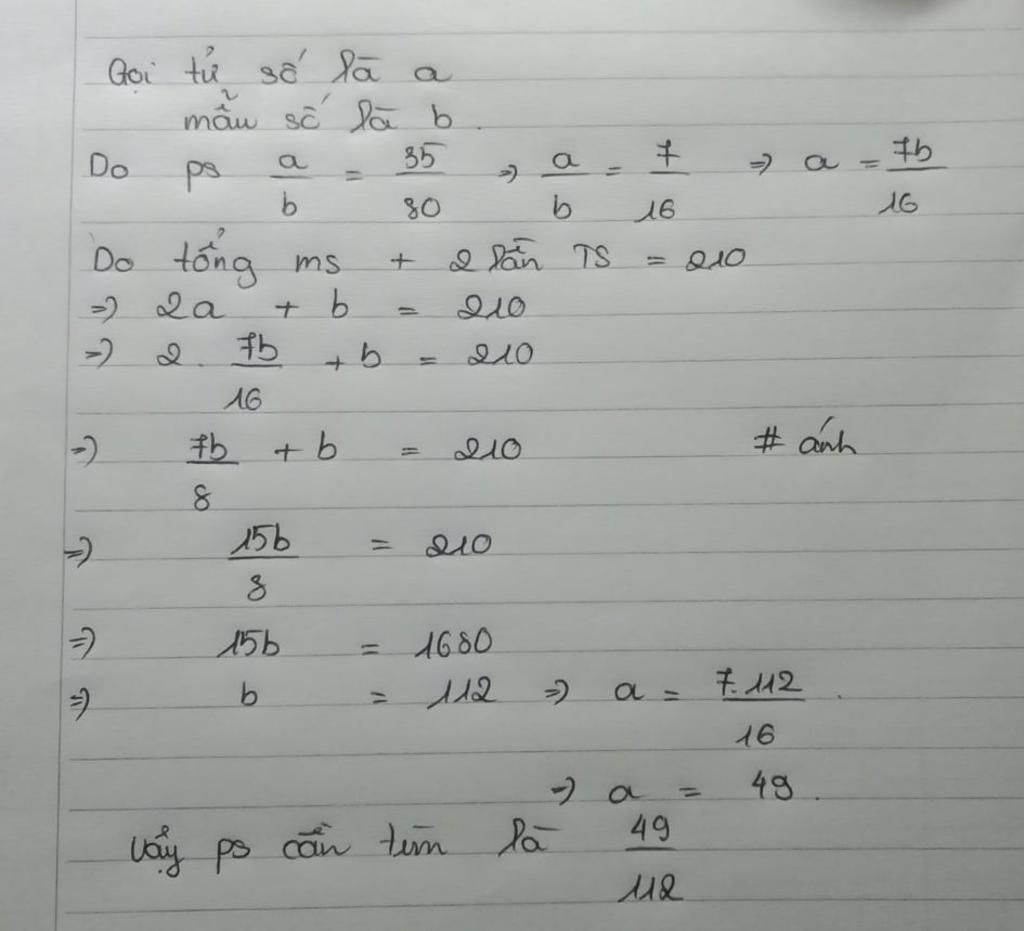 Gọi tử số là a
mẫu số là b.
Do ps a/b = 35/80 => a/b = 7/16 => a = 7b/16
Do tổng ms + 2 lần TS = 210
=> 2a + b = 210
=> 2. 7b/16 + b = 210
=> 7b/8 + b = 210 # ánh
=> 15b/8 = 210
=> 15b = 1680
=> b = 112 => a = 7.112/16.
=> a = 49.
Vậy ps cần tìm là 49/112